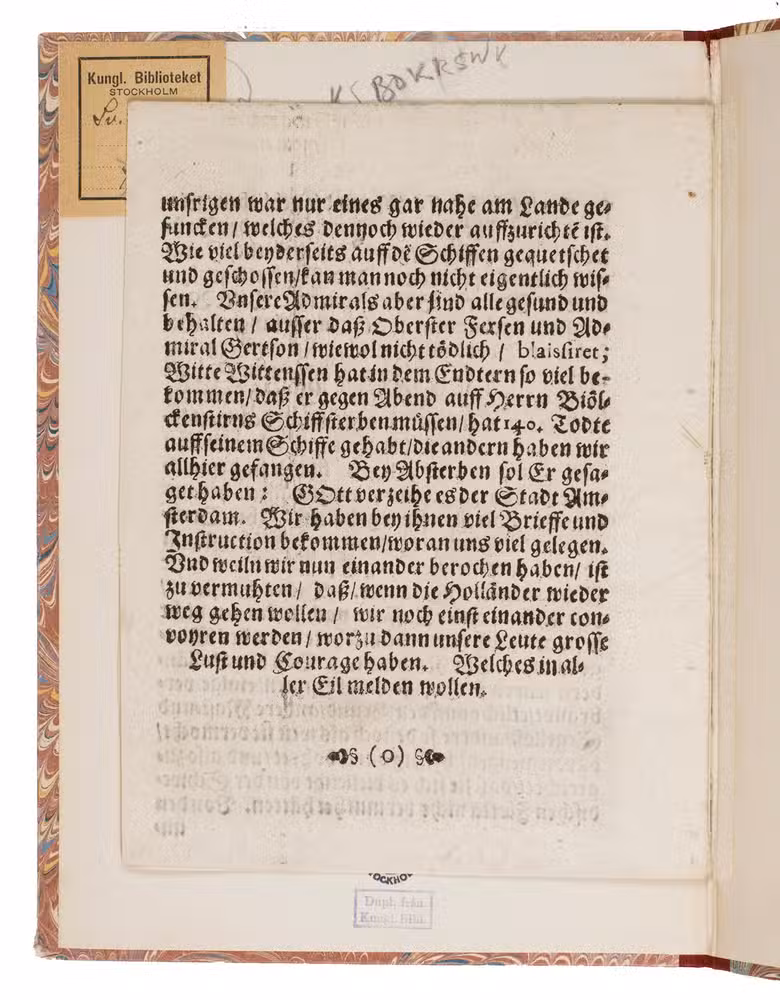 Kungl. Biblioteket
STOCKHOLM
Sv.
KSBOKRSWK
unsrigen war nur eines gar nahe am Lande ge-
suncken / welches dennoch wieder auffzurichtē ist.
Wie viel beyderseits auff dē Schiffen gequetschet
und geschossen / kan man noch nicht eigentlich wis-
sen. Vnsere Admirals aber sind alle gesund und
behalten / ausser daß Oberster Fersen und Ad-
miral Gertson / wiewol nicht tödlich / blaisiret;
Witte Wittenssen hat in dem Endtern so viel be-
kommen / daß er gegen Abend auff Herrn Biöl-
ckenstirns Schiff sterben müssen / hat 140. Todte
auff seinem Schiffe gehabt / die andern haben wir
allhier gefangen. Bey Absterben sol Er gesa-
get haben: GOtt verzeihe es der Stadt Am-
sterdam. Wir haben bey ihnen viel Brieffe und
Instruction bekommen / woran uns viel gelegen.
Vnd weiln wir nun einander berochen haben / ist
zu vermuhten / daß / wenn die Holländer wieder
weg gehen wollen / wir noch einst einander con-
voyren werden / worzu dann unsere Leute grosse
Lust und Courage haben. Welches in al-
ler Eil melden wollen.
§ (o) §
OCKHO
Dupl. från
Kungl. Bibl.